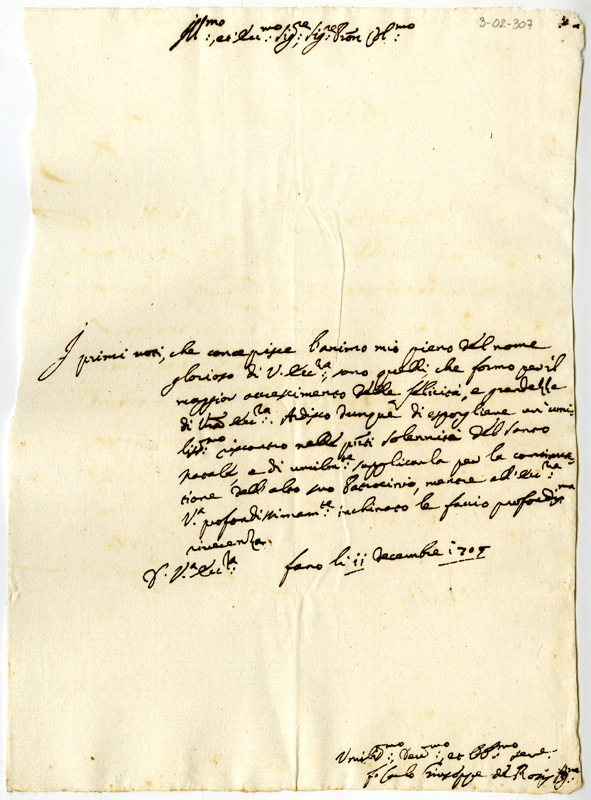 3-02-307
Ill:mo, et Ecc:mo Sig:re Sig:re Pron Col:mo
I primi voti, che concepisce l'animo mio pieno del nome
glorioso di V. Ecc:za, sono quelli, che formo per il
maggior accrescimento delle felicità, e grandezze
di Vra Ecc:za. Ardisco dunque di esporgliene un' umi-
liss:mo riscontro nella pnte solennità del Santo
Natale e di umilm:te supplicarla per la continua-
tione dell'alto suo Patrocinio, mentre all'Ecc:za
V:a profondissimam:te inchinato le faccio profondiss:ma
riverenza.
D. V:a Ecc:za Fano li 11 Decembre 1709
Umiliss:mo Dev:mo et Obb:mo Serv:
Carlo Giuseppe de